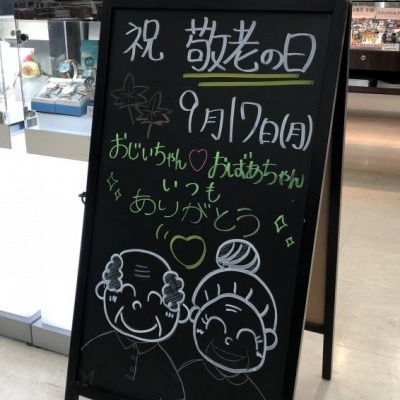 祝 敬老の日
9月17日(月)
おじいちゃん♡おばあちゃん
いつも
ありがとう